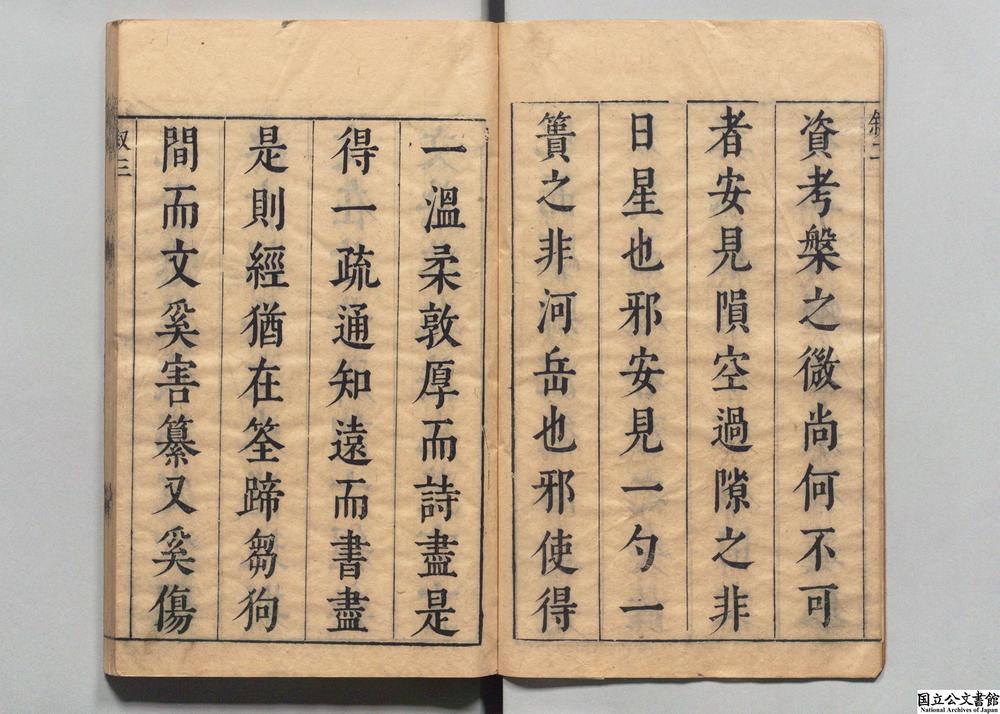 資考槃之微尚何不可
者安見隕空過隙之非
日星也邪安見一勺一
簣之非河岳也邪使得
一溫柔敦厚而詩盡是
得一疏通知遠而書盡
是則經猶在筌蹄芻狗
間而文奚害纂又奚傷
叙三
国立公文書館
National Archives of Japan